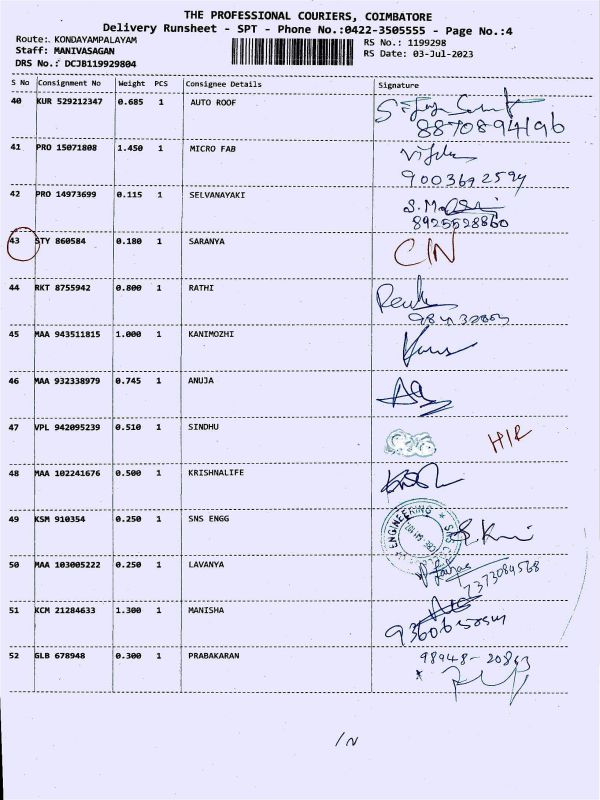 THE PROFESSIONAL COURIERS, COIMBATORE
Delivery Runsheet - SPT - Phone No.:0422-3505555 - Page No.:4
Route: KONDAYAMPALAYAM RS No.: 1199298
Staff: MANIVASAGAN RS Date: 03-Jul-2023
DRS No.: DCJB119929804
S No Consignment No Weight PCS Consignee Details Signature
40 KUR 529212347 0.685 1 AUTO ROOF
8870894196
41 PRO 15071808 1.450 1 MICRO FAB
9003692594
42 PRO 14973699 0.115 1 SELVANAYAKI
8925528860
43 STY 860584 0.180 1 SARANYA C/N
44 RKT 8755942 0.800 1 RATHI
45 MAA 943511815 1.000 1 KANIMOZHI
46 MAA 932338979 0.745 1 ANUJA
47 VPL 942095239 0.510 1 SINDHU H/R
48 MAA 102241676 0.500 1 KRISHNALIFE
49 KSM 910354 0.250 1 SNS ENGG
ENGINEERING
50 MAA 103005222 0.250 1 LAVANYA
7373084568
51 KCM 21284633 1.300 1 MANISHA
52 GLB 678948 0.300 1 PRABAKARAN 98948-20863
/N